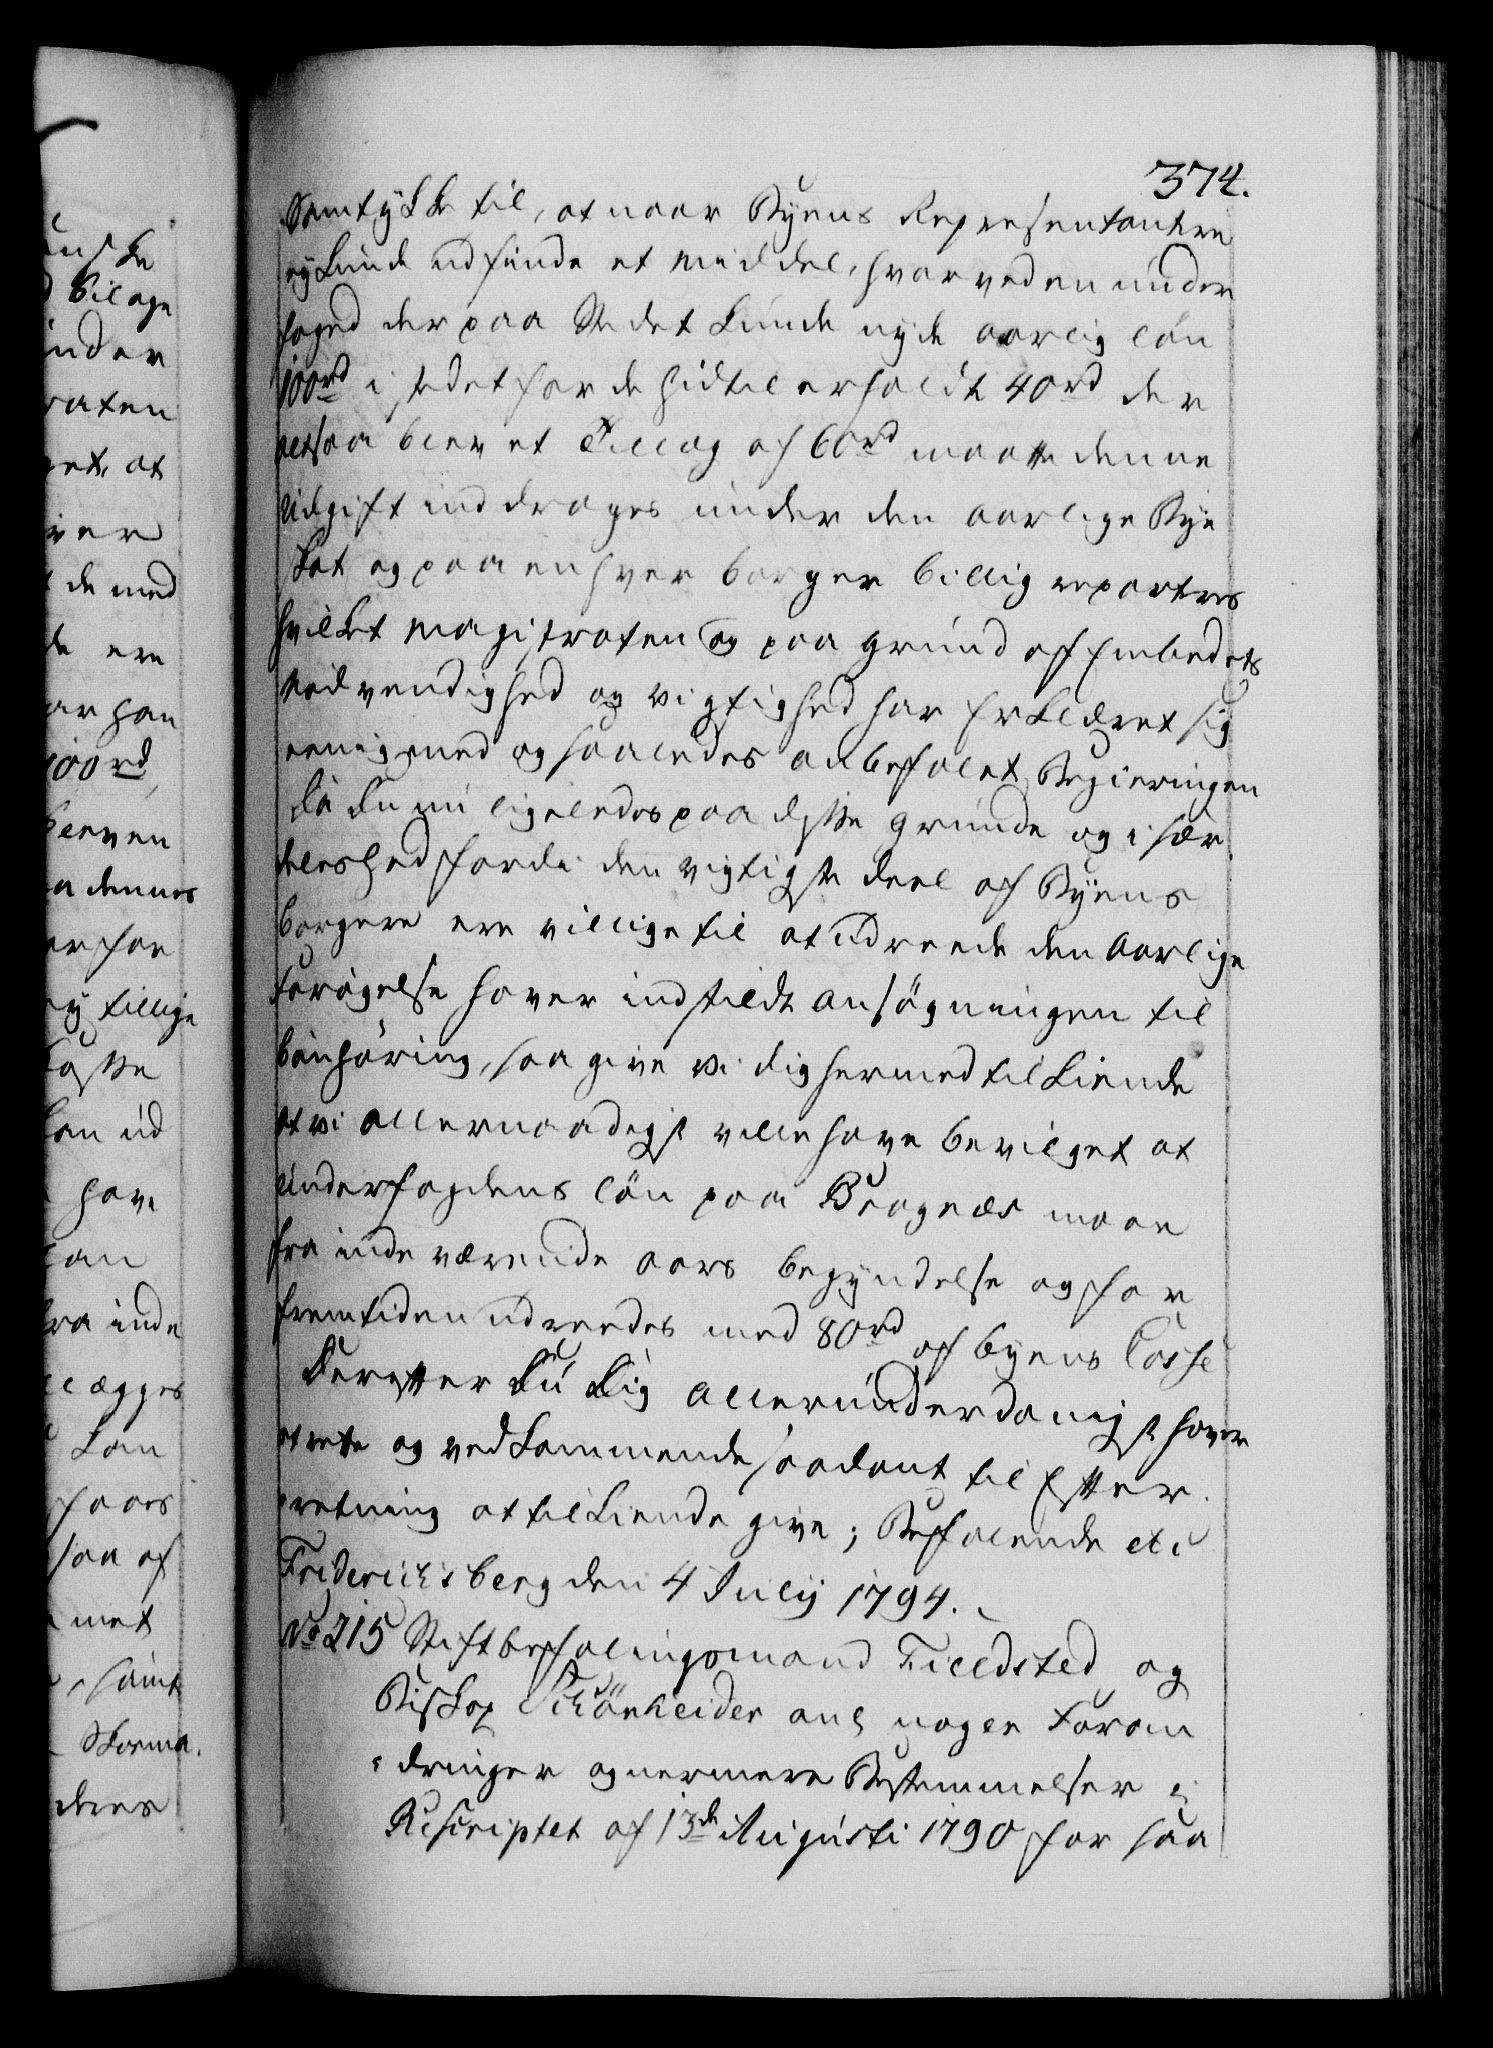 374.
Samtykke til, at naar Byens Repræsentantere
ey kunde udfinde et Middel, hvorved en under
foged der paa Stedet kunde nyde aarlig løn
100rd i stedet for de hidtil erholdt 40rd der
altsaa blev et Tillæg af 60rd maatte denne
Udgift inddrages under den aarlige Bye
skat og paa enhver borger billig reparteres
hvilket Magistraten og paa Grund af Embedets
Nødvendighed og vigtighed har Erklæret sig
eenig med og saaledes anbefalet Regieringen
Da Du nu ligeledes paa disse Grunde og i sær
deleshed fordi den vigtigste deel af Byens
borgere ere villige til at udreede den Aarlige
Forøgelse haver indstildt Ansøgningen til
bønhøring, saa give Vi dig hermed tilkiende
at vi allernaadigst ville have bevilget at
Underfogdens løn paa Bragnæs maae
fra indeværende aars begyndelse og for
fremtiden udreedes med 80rd af byens Casse
Derefter Du Dig allerunderdanigst haver
at rette og vedkommende saadant til Efter
retning at tilkiende give; Befalende etc
Friderichsberg den 4 Julij 1794.
No 215 Stiftbefalingsmand Fieldsted og
Biskop Schönheider ang nogle Foran
dringer og nermere Bestemmelser i
Rescriptet af 13de Augusti 1790 for saa